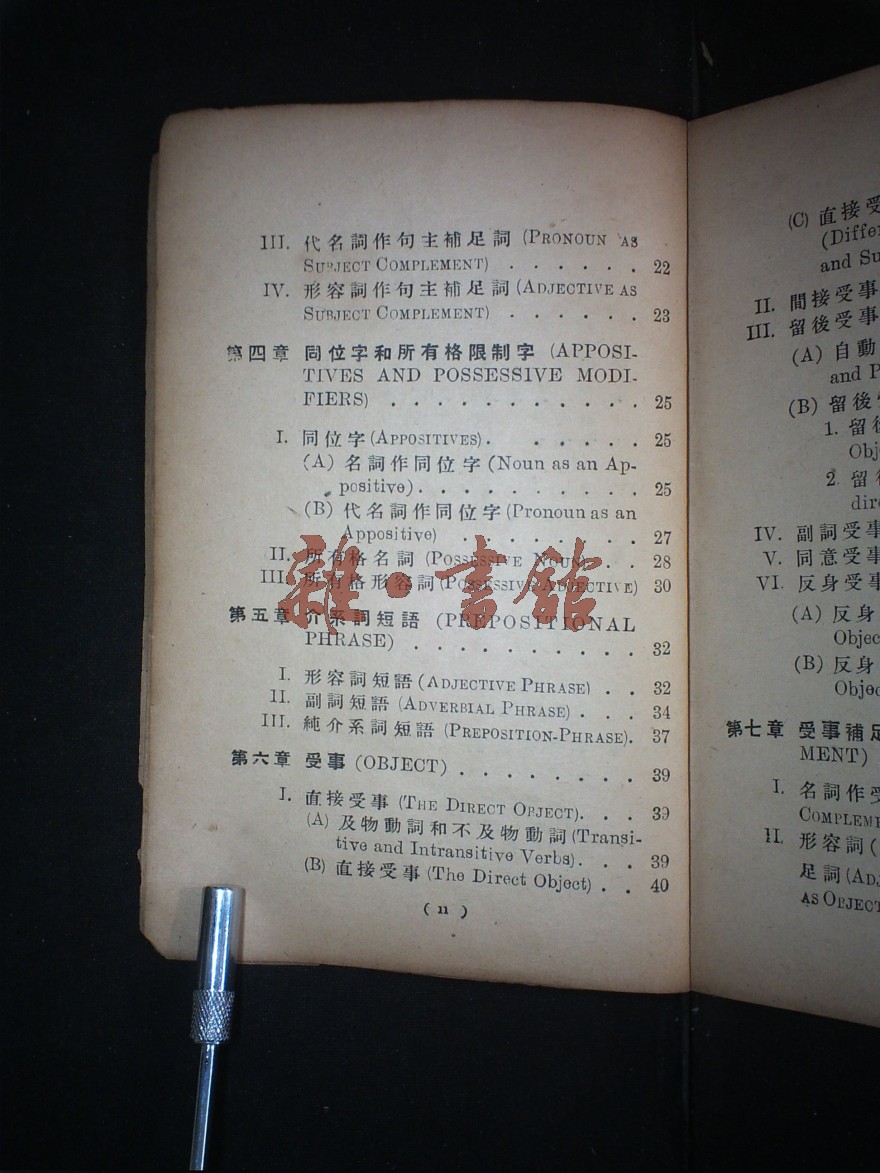 III. 代名詞作句主補足詞 (PRONOUN AS
SUBJECT COMPLEMENT) . . . . . . 22
IV. 形容詞作句主補足詞 (ADJECTIVE AS
SUBJECT COMPLEMENT) . . . . . . 23
第四章 同位字和所有格限制字 (APPOSI-
TIVES AND POSSESSIVE MODI-
FIERS) . . . . . . . . . . . 25
I. 同位字 (APPOSITIVES) . . . . . . 25
(A) 名詞作同位字 (Noun as an Ap-
positive) . . . . . . . . . . 25
(B) 代名詞作同位字 (Pronoun as an
Appositive) . . . . . . . . 27
II. 所有格名詞 (POSSESSIVE NOUN) . . 28
III. 所有格形容詞 (POSSESSIVE ADJECTIVE) 30
第五章 介系詞短語 (PREPOSITIONAL
PHRASE) . . . . . . . . . . 32
I. 形容詞短語 (ADJECTIVE PHRASE) . . 32
II. 副詞短語 (ADVERBIAL PHRASE) . . . 34
III. 純介系詞短語 (PREPOSITION-PHRASE) . 37
第六章 受事 (OBJECT) . . . . . . . . 39
I. 直接受事 (THE DIRECT OBJECT) . . . 39
(A) 及物動詞和不及物動詞 (Transi-
tive and Intransitive Verbs) . . . 39
(B) 直接受事 (The Direct Object) . . 40
( II )
雜·書館
(C) 直接受
(Differ
and Su
II. 間接受事
III. 留後受事
(A) 自動
and P
(B) 留後
1. 留
Obj
2. 留
dire
IV. 副詞受事
V. 同意受事
VI. 反身受事
(A) 反身
Objec
(B) 反身
Objec
第七章 受事補足
MENT)
I. 名詞作受
COMPLEME
II. 形容詞 (
足詞 (ADJ
AS OBJECT